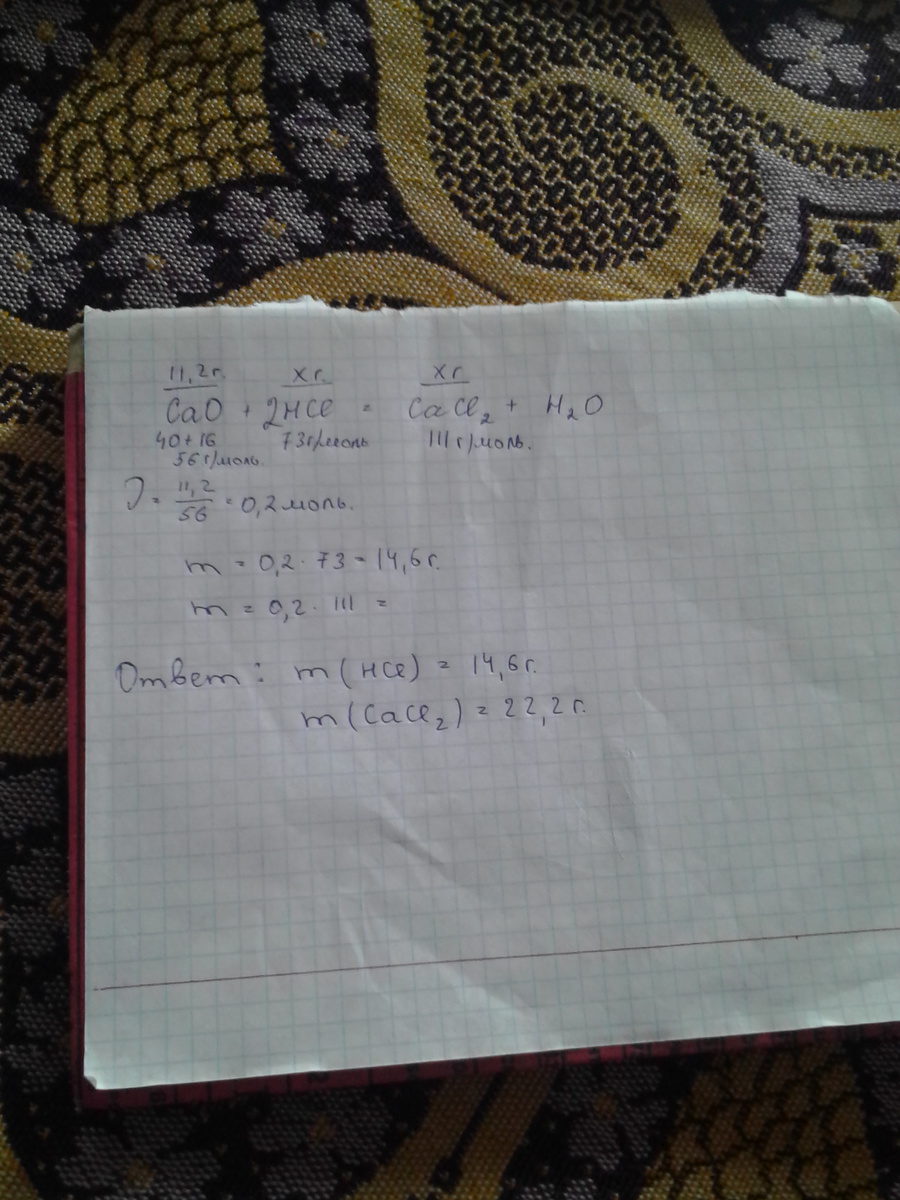 11,2г. xг. xг
CaO + 2HCl = CaCl₂ + H₂O
40+16 73г/моль 111г/моль.
56г/моль.
ν = 11,2/56 = 0,2моль.
m = 0,2 · 73 = 14,6г.
m = 0,2 · 111 =
Ответ: m(HCl) = 14,6г.
m(CaCl₂) = 22,2г.